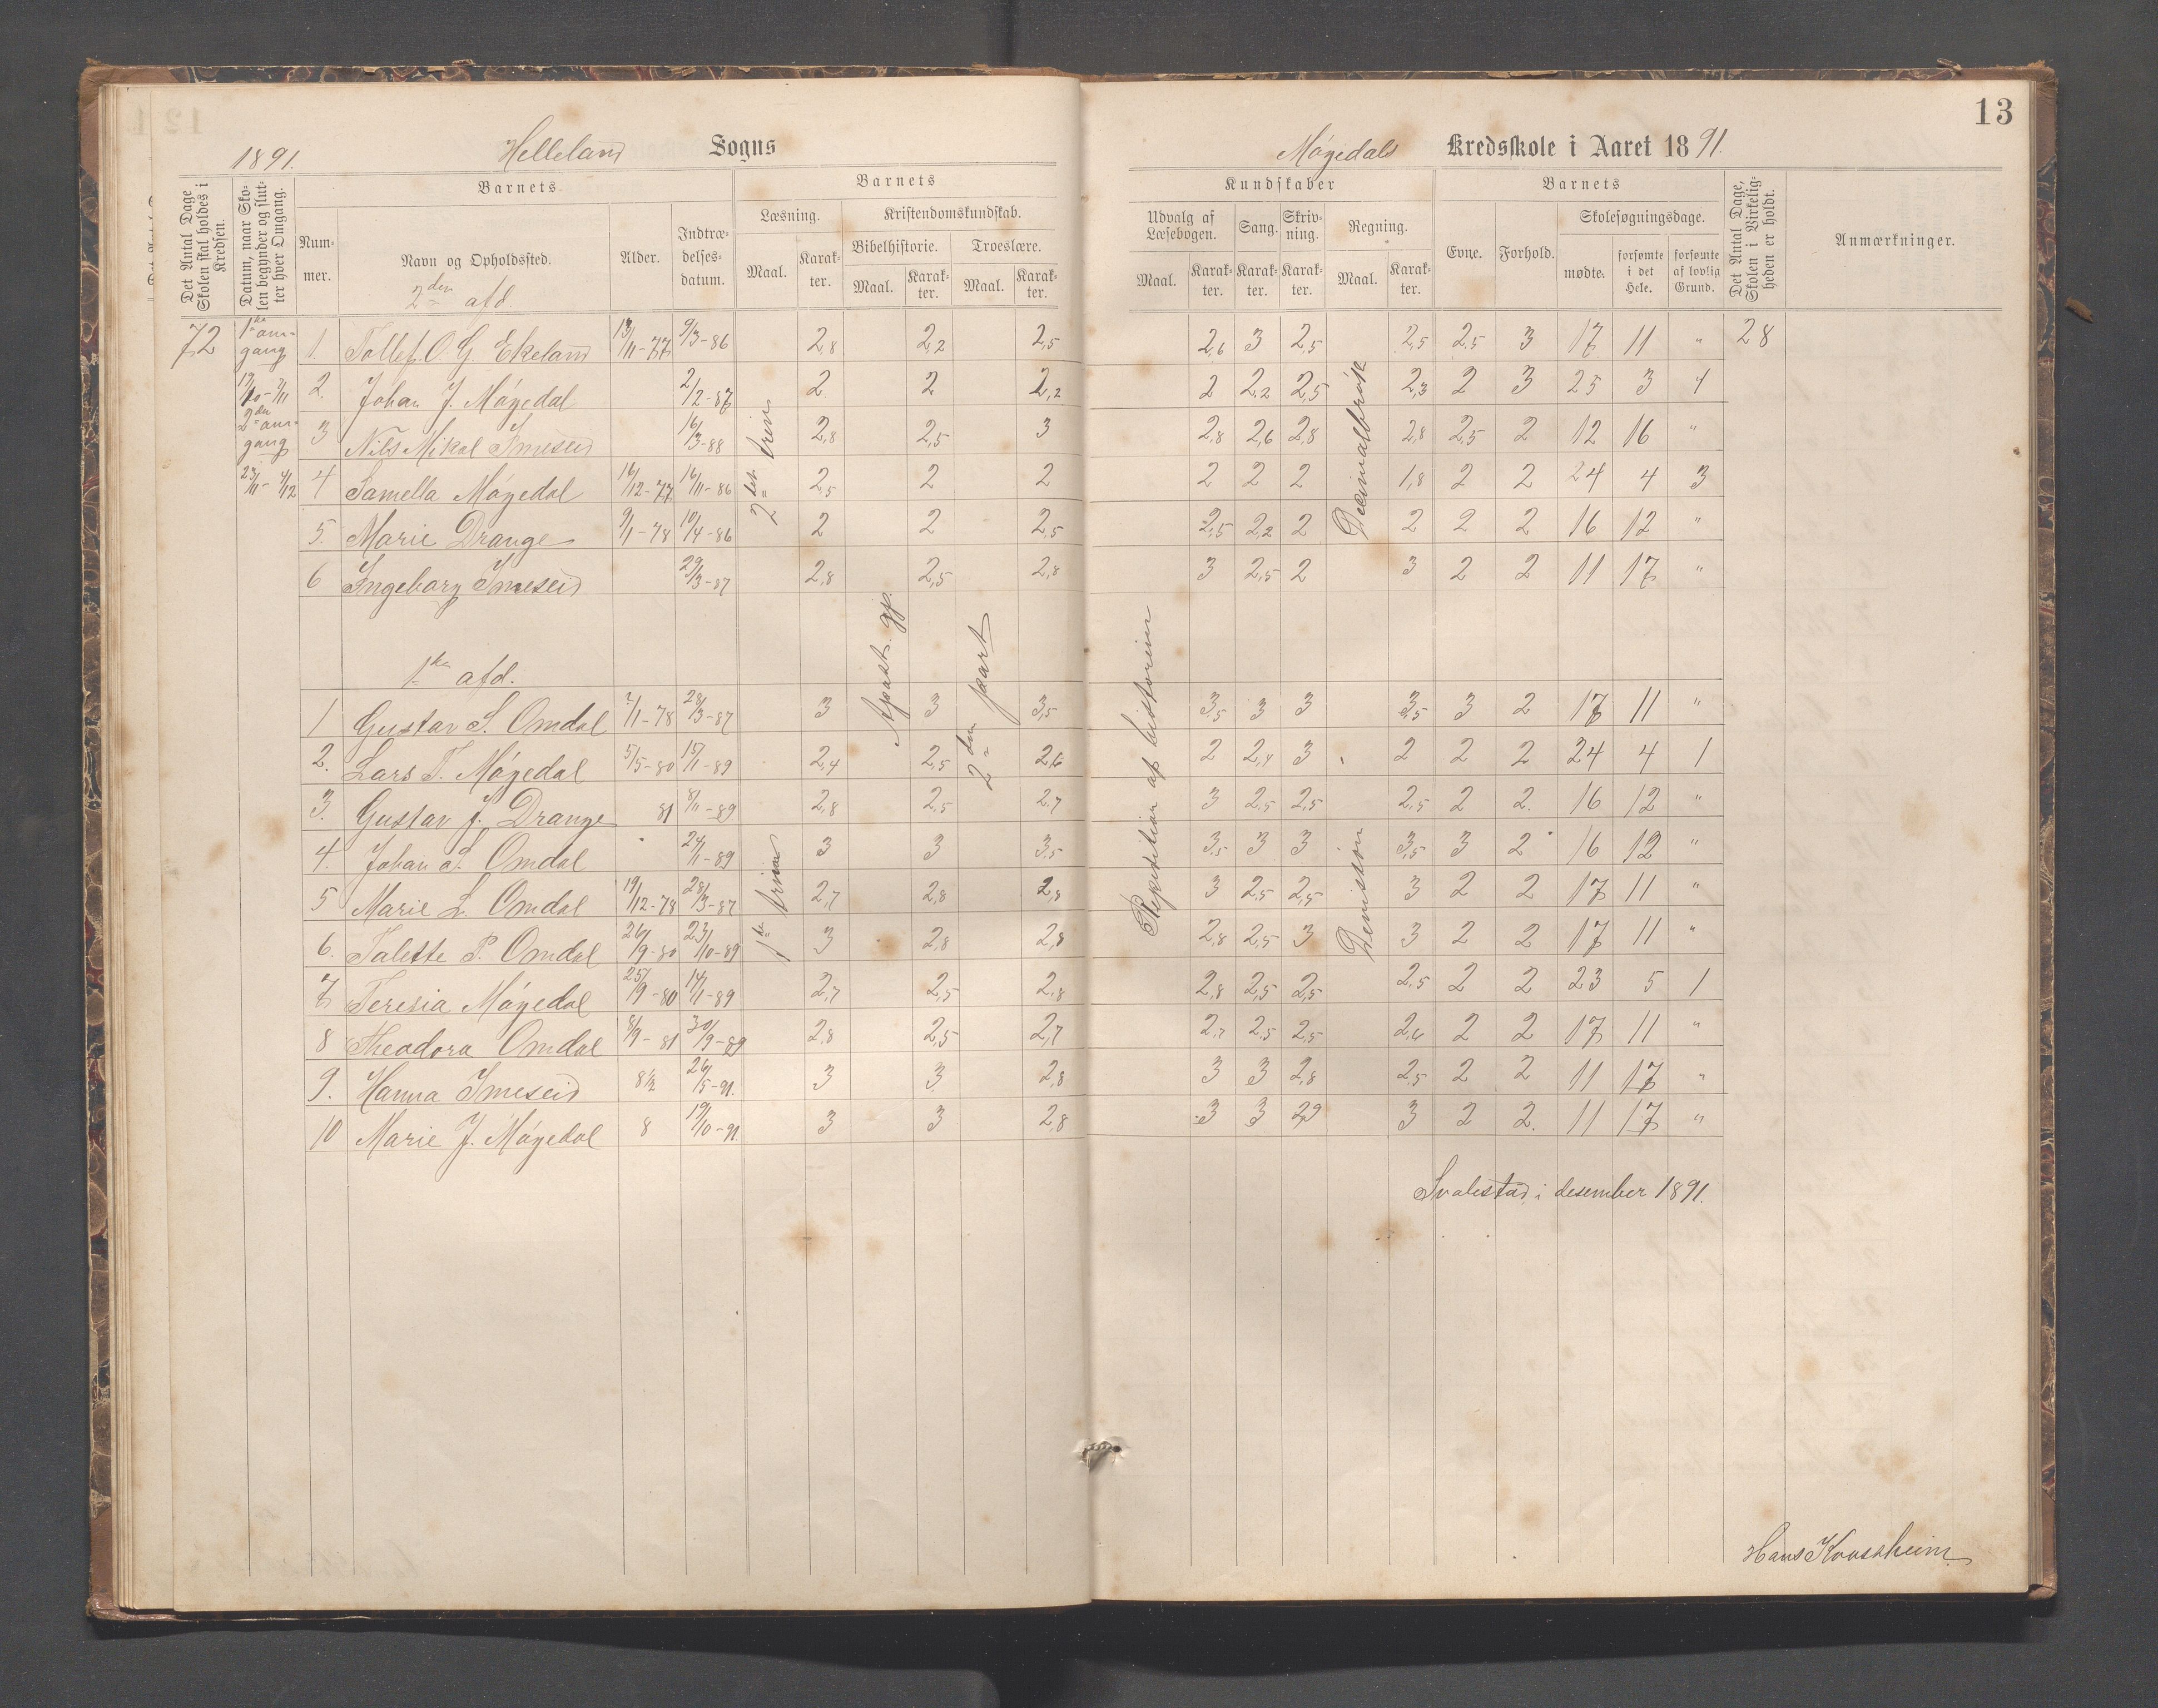 13
1891. Helleland Sogns
Møgedals Kredsskole i Aaret 1891.
Det Antal Dage Skolen skal holdes i Kredsen.
Datum, naar Skolen begynder og slutter hver Omgang.
Nummer.
Barnets
Navn og Opholdssted.
Alder.
Indtrædelsesdatum.
Barnets
Læsning.
Maal. Karakter.
Kristendomskundskab.
Bibelhistorie. Troeslære.
Maal. Karakter. Maal. Karakter.
Kundskaber
Udvalg af Læsebogen. Sang. Skrivning. Regning.
Maal. Karakter. Karakter. Karakter. Maal. Karakter.
Barnets
Evne. Forhold. Skolesøgningsdage.
mødte. forsømte i det Hele. forsømte af lovlig Grund.
Det Antal Dage, Skolen i Virkeligheden er holdt.
Anmærkninger.
2den afd.
72 1ste omgang 19/10 - 7/11 2den omgang 23/11 - 4/12
1. Tollef O. G. Ekeland 13/11-77 9/3-86 2,8 2,2 2,5 2,6 3 2,5 2,5 2,5 3 17 11 " 28
2. Johan J. Møgedal 2/2-87 2 2 2,2 2 2,2 2,5 2,3 2 3 25 3 1
3 Nils Mikal Imeseid 16/3-88 2,8 2,5 3 2,8 2,6 2,8 2,8 2,5 2 12 16 "
4 Samella Møgedal 16/12-77 16/11-86 2,5 2 2 2 2 2 1,8 2 2 24 4 3
5. Marie Drange 9/1-78 10/4-86 2 2 2,5 2,5 2,2 2 2 2 2 16 12 "
6 Ingeborg Imeseid 29/3-87 2,8 2,5 2,8 3 2,5 2 3 2 2 11 17 "
2det trin
Decimalbrøk
1ste afd.
1 Gustav S. Omdal 7/1-78 28/3-87 3 3 3,5 3,5 3 3 3,5 3 2 17 11 "
2. Lars T. Møgedal 5/5-80 15/1-89 2,4 2,5 2,6 2 2,4 3 2 2 2 24 4 1
3. Gustav J. Drange 81 8/11-89 2,8 2,5 2,7 3 2,5 2,5 2,5 2 2. 16 12 "
4. Johan A. S. Omdal 24/11-89 3 3 3,5 3,5 3 3 3,5 3 2 16 12 "
5 Marie L. Omdal 19/12-78 28/3-87 2,7 2,8 2,8 3 2,5 2,5 3 2 2 17 11 "
6. Talette P. Omdal 26/9-80 23/10-89 3 2,8 2,8 2,8 2,5 3 3 2 2 17 11 "
7 Teresia Møgedal 25/9-80 14/1-89 2,7 2,5 2,8 2,8 2,5 2,5 2,5 2 2 23 5 1
8 Theodora Omdal 8/9-81 30/9-89 2,8 2,5 2,7 2,7 2,5 2,5 2,6 2 2 17 11 "
9. Hanna Imeseid 8 1/2 26/5-91. 3 3 2,8 3 3 2,8 2,5 2 2 11 17 "
10 Marie J. Møgedal 8 19/10-91. 3 3 2,8 3 3 2,9 3 2 2. 11 17 "
1ste trin
Apost. gj.
2den part
Repetition af historien
Svalestad i desember 1891.